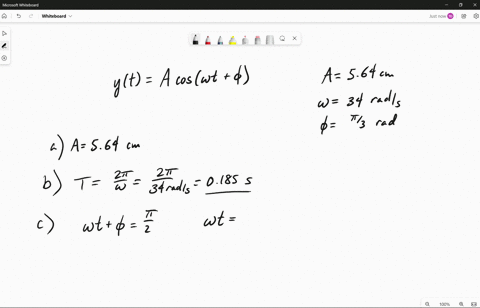 Microsoft Whiteboard
Whiteboard
Just now
y(t) = A cos(ωt + φ)
A = 5.64 cm
ω = 34 rad/s
φ = π/3 rad
a) A = 5.64 cm
b) T = 2π/ω = 2π/34 rad/s = 0.185 s
c) ωt + φ = π/2 ωt =
100%